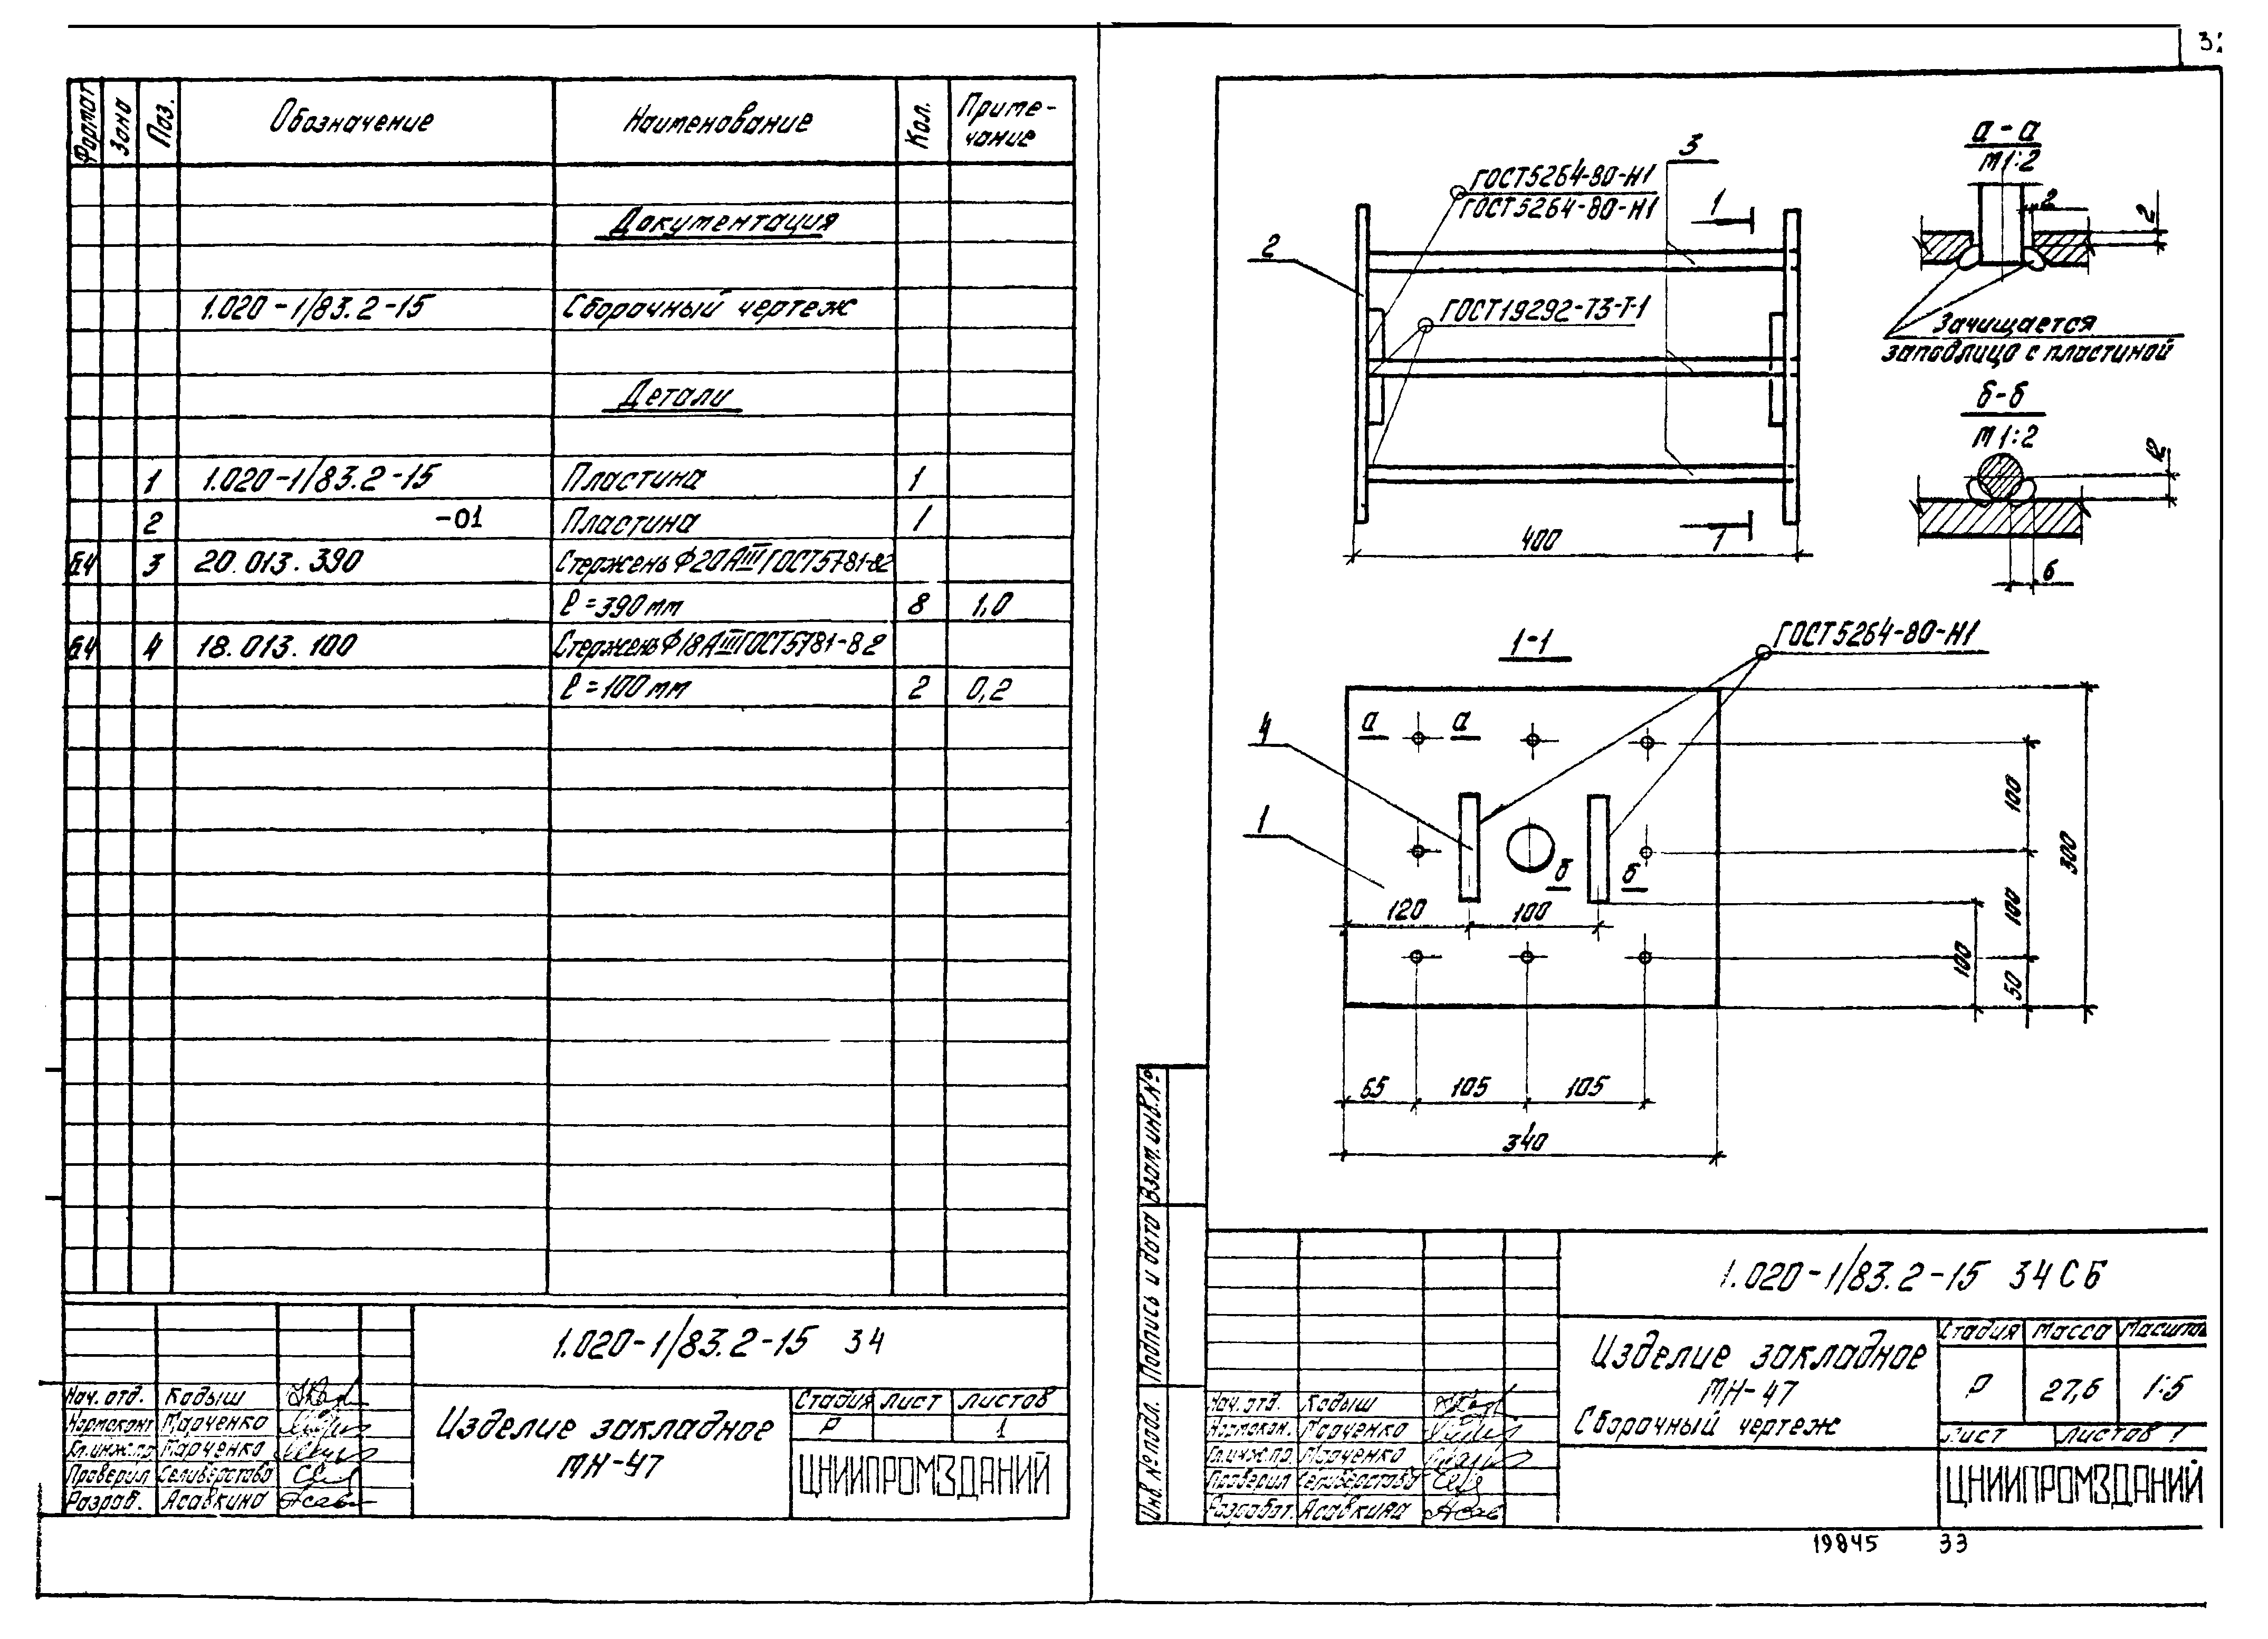 Формат
Зона
Поз.
Обозначение
Наименование
Кол.
Приме-
чание
Документация
1.020-1/83.2-15
Сборочный чертеж
Детали
1
1.020-1/83.2-15
Пластина
1
2
-01
Пластина
1
Б4
3
20.013.390
Стержень Ф20АIII ГОСТ5781-82
ℓ=390мм
8
1,0
Б4
4
18.013.100
Стержень Ф18АIII ГОСТ5781-82
ℓ=100мм
2
0,2
1.020-1/83.2-15 34
Нач. отд. Кодыш
Нормоконт Марченко
Гл.инж.пр. Марченко
Проверил Селиверстова
Разраб. Асавкина
Изделие закладное
МН-47
Стадия
Лист
Листов
Р
1
ЦНИИПРОМЗДАНИЙ
ГОСТ5264-80-Н1
ГОСТ5264-80-Н1
3
1
2
ГОСТ19292-73-Т-1
400
1
а-а
М1:2
2
2
Зачищается
заподлицо с пластиной
б-б
М1:2
6
1-1
ГОСТ5264-80-Н1
а
а
4
1
б
б
120
100
100
100
50
100
300
65
105
105
340
Взам. инв. №
Подпись и дата
Инв. № подл.
1.020-1/83.2-15 34СБ
Нач. отд. Кодыш
Нормокон. Марченко
Гл.инж.пр. Марченко
Проверил Селиверстова
Разработ. Асавкина
Изделие закладное
МН-47
Сборочный чертеж
Стадия
Масса
Р
27,6
1:5
Лист
Листов 1
ЦНИИПРОМЗДАНИЙ
19845 33